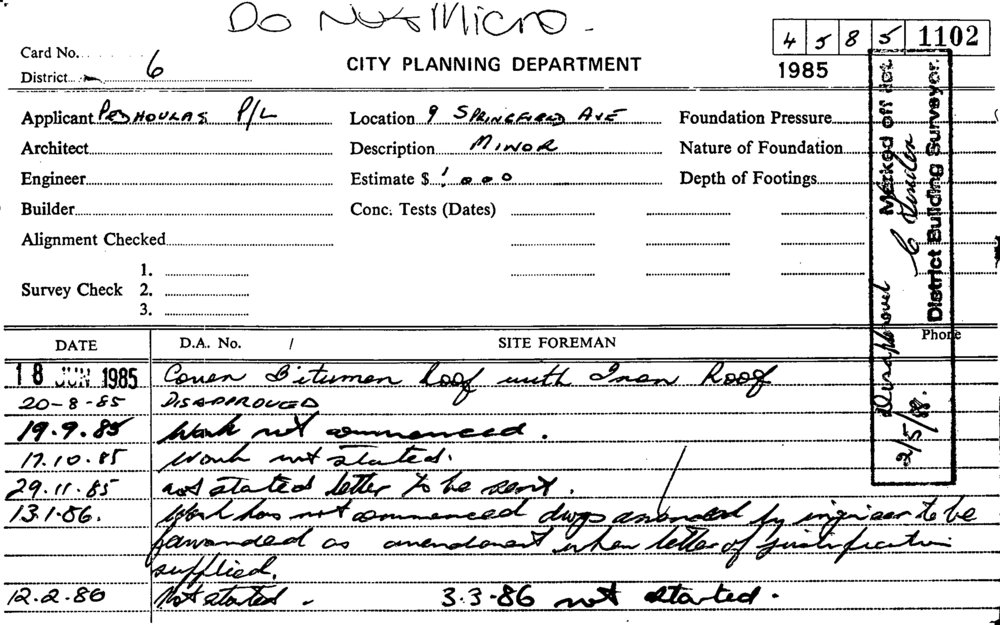 Do Not Micro -
4 5 8 5 1102
1985
Card No. 6
District
CITY PLANNING DEPARTMENT
Applicant P/L Location 9 SPRINGFIELD AVE Foundation Pressure
Architect Description MINOR Nature of Foundation
Engineer Estimate $ 1000 Depth of Footings
Builder Conc. Tests (Dates)
Alignment Checked
1.
Survey Check 2.
3.
Phone
DATE D.A. No. / SITE FOREMAN
18 JUN 1985 Cover Bitumen Roof with Iron Roof
20-8-85 DISAPPROVED
19.9.85 Work not commenced.
17.10.85 Work not started.
29.11.85 not started letter to be sent.
13.1.86. Work has not commenced dwgs by engineer to be
forwarded as amendment when letter of justification
supplied.
12.2.86 Not started. 3.3.86 not started.
Marked off
District Building Surveyor.
Disapproved
2/5/88.